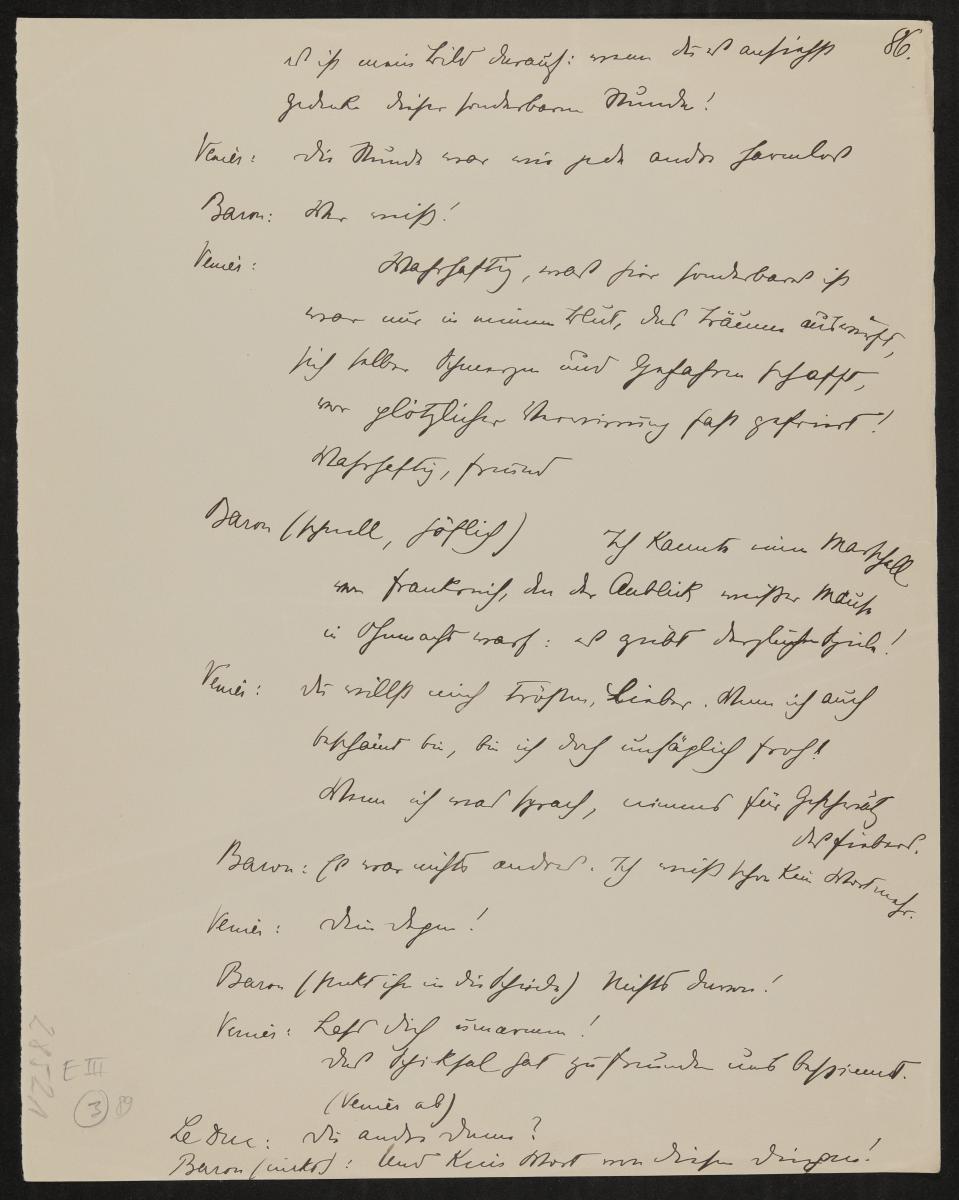 86.
es ist mein Bild darauf: wenn du es ansiehst
gedenke dieser sonderbaren Stunde!
Venier: Die Stunde war wie jede andre harmlos
Baron: Wer weiß!
Venier: Wahrhaftig, was hier sonderbares ist
war nur in meinem Blut, das Träume auswirft,
sich selber Schmerzen und Gefahren schafft,
vor plötzlicher Verwirrung fast gefriert!
Wahrhaftig, Freund
Baron (schnell, höflich) Ich kannte einen Marschall
von Frankreich, den der Anblick weißer Mäuse
in Ohnmacht warf: es giebt dergleichen Spiele!
Venier: Du willst mich trösten, Lieber. Wenn ich auch
beschämt bin, bin ich doch unsäglich froh!
Wenn ich was sprach, nimms für Geschwätz
des Fiebers.
Baron: Es war nichts andres. Ich weiß schon kein Wort mehr.
Venier: Dein Degen!
Baron (steckt ihn in die Scheide) Nichts davon!
Venier: Lass dich umarmen!
Das Schiksal hat zu Freunden uns bestimmt.
(Venier ab)
Le Duc: Die andre Dame?
Baron (nickt): Und kein Wort von diesen Dingen!
28521
E III
3
89